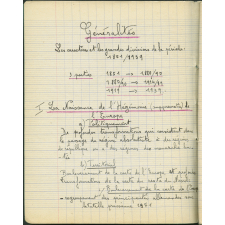 Généralités
Les maîtres et les grandes divisions de la période
1851/1939
3 parties 1851 → 1889/90
1889/90 → 1914/19
1919 → 1939
I La Naissance de l'Hégémonie
de l'Europe
a) Politiquement
De profondes transformations qui consistent dans
le passage du régime absolutiste à
république ou à des régimes des monarchies
b) Territorial
Bouleversement de la carte de l'Europe et
transformations de la carte du Monde
1) Bouleversement de la carte de
regroupement des principautés allemandes
1851